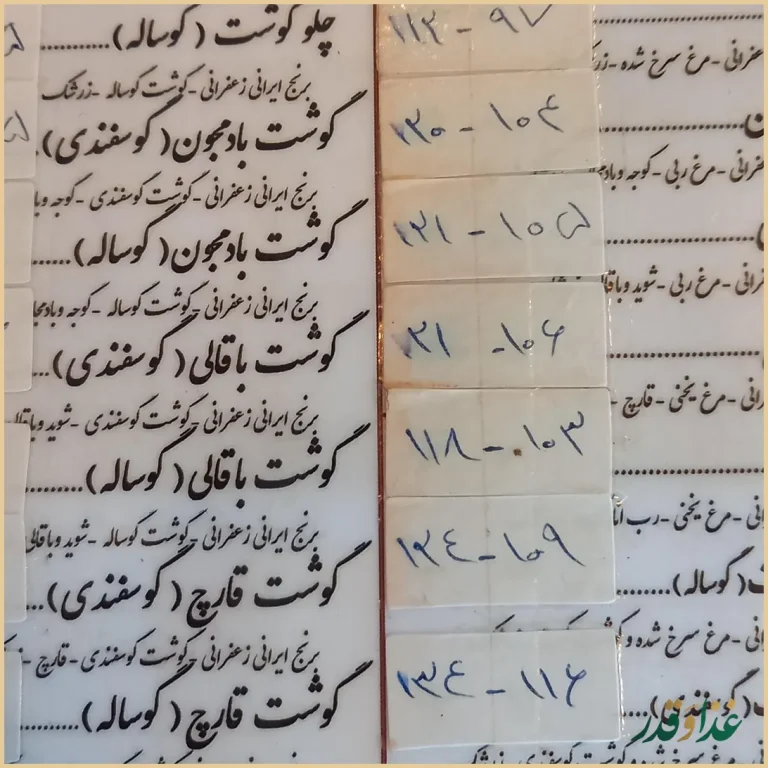 چلو گوشت ( گوساله)............
برنج ایرانی زعفرانی -گوشت گوساله -زرشک
گوشت بادمجون( گوسفندی).
برنج ایرانی زعفرانی -گوشت گوسفندی -گوجه وبا
گوشت بادمجون( گوساله)......
برنج ایرانی زعفرانی -گوشت گوساله -گوجه وبادمجا
گوشت باقالی( گوسفندی)...
برنج ایرانی زعفرانی -گوشت گوسفندی -شوید وباقال
گوشت باقالی( گوساله).........
برنج ایرانی زعفرانی -گوشت گوساله -شوید وباقالی
گوشت قارچ ( گوسفندی)...
برنج ایرانی زعفرانی -گوشت گوسفندی -قارچ -
گوشت قارچ ( گوساله)..........
۱۱۲ - ۹۷
۱۲۰ - ۱۰۴
۱۲۱ - ۱۰۵
۱۲۱ - ۱۰۶
۱۱۸ - ۱۰۳
۱۲۴ - ۱۰۹
۱۳۴ - ۱۱۶
عفرانی -مرغ سرخ شده -زر
عفرانی -مرغ ربی -گوجه وبادم
فرانی -مرغ ربی -شوید وباقا
رانی -مرغ یخنی -قارچ -
انی -مرغ یخنی -رب انا
( گوساله).........
انی -مرغ سرخ شده و
( گوسفندی)....
غذا و قدر